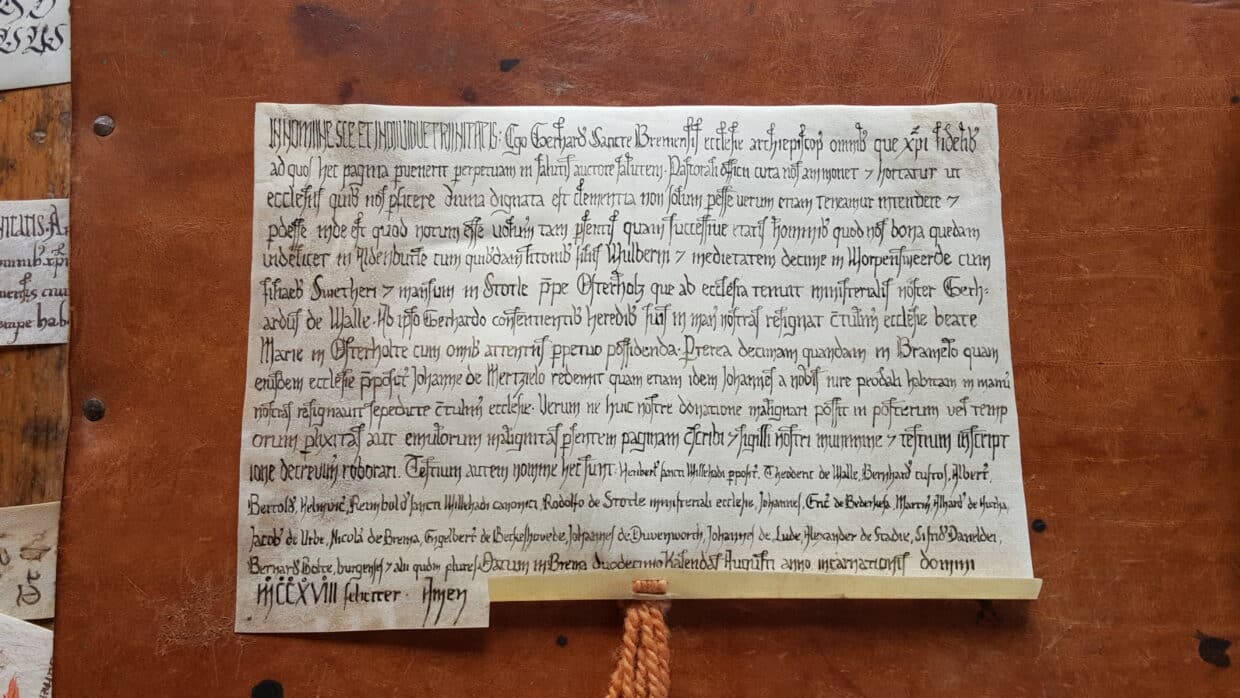 IN NOMINE SCE ET INDIVIDUE TRINITATIS: Ego Gerhard' Sancte Bremensis ecclesie archiepiscop' omnib' que xpi fidelib'
ad quos hec pagina pvenerit perpetuam in salutis auctore salutem. Pastoralis officii cura nos ammonet ⁊ hortatur ut
ecclesiis quib' nos pficere divina dignata est clementia non solum pesse verum etiam teneamur intendere ⁊
pdesse inde est quod notum esse volum' tam psentis quam successive etatis hominib' quod nos bona quedam
videlicet in Aldenbutle cum quibusdam litonib' filiis Wulberni ⁊ medietatem decime in Worpensweerde cum
filiab' Swetheri ⁊ mansum in Stotle ppe Osterholz que ab ecclesia tenuit ministerialis noster Gerh-
ardus de Walle. Ab ipso Gerhardo consentientib' heredib' suis in man' nostras resignat' ctulim' ecclesie beate
Marie in Osterholte cum omib' attentiis ppetuo possidenda. Pterea decimam quandam in Bramelo quam
eiusdem ecclesie pposit' Johanne de Mertzielo redemit quam etiam idem Johannes a nobis iure peodali habitam in manu
nostras resignavit sepedicte ctulim' ecclesie. Verum ne huic nostre donatione malignari possit in posterum vel temp
orum plixitas aut emulorum malignitas psentem paginam cscribi ⁊ sigilli nostri munimine ⁊ testium inscript
ione decrevim' roborari. Testium autem nomine hec sunt: Heribert' sancti Willehadi pposit', Theoderic' de Walle, Bernhard' custos, Albert',
Bertold', Helmvic', Reimbold' sancti Willehadi canonici, Rodolfo de Stotle ministerialis ecclesie, Johannes, Eric' de Bederkesa, Martin', Alhard' de
Jacob' de Urbe, Nicola' de Brema, Engelbert' de Beckeshovede, Johannes de Duvenworth, Johannes de Lude, Alexander de Stadie, Sifrid'
Bernard' burgenses ⁊ alii quam plures. Datum in Brema duodecimo Kalendas Augusti anno incarnationis domini
MCCXVIII feliciter. Amen